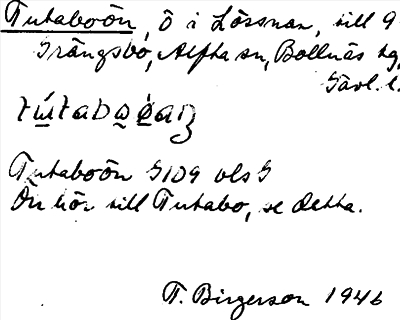 Tutaboön, ö i Lössnan, till 9
Grängsbo, Alfta sn, Bollnäs tg,
Gävl. l.
Tutaboön G109 vls G
Ön hör till Tutabo, se detta.
T. Birgerson 1946